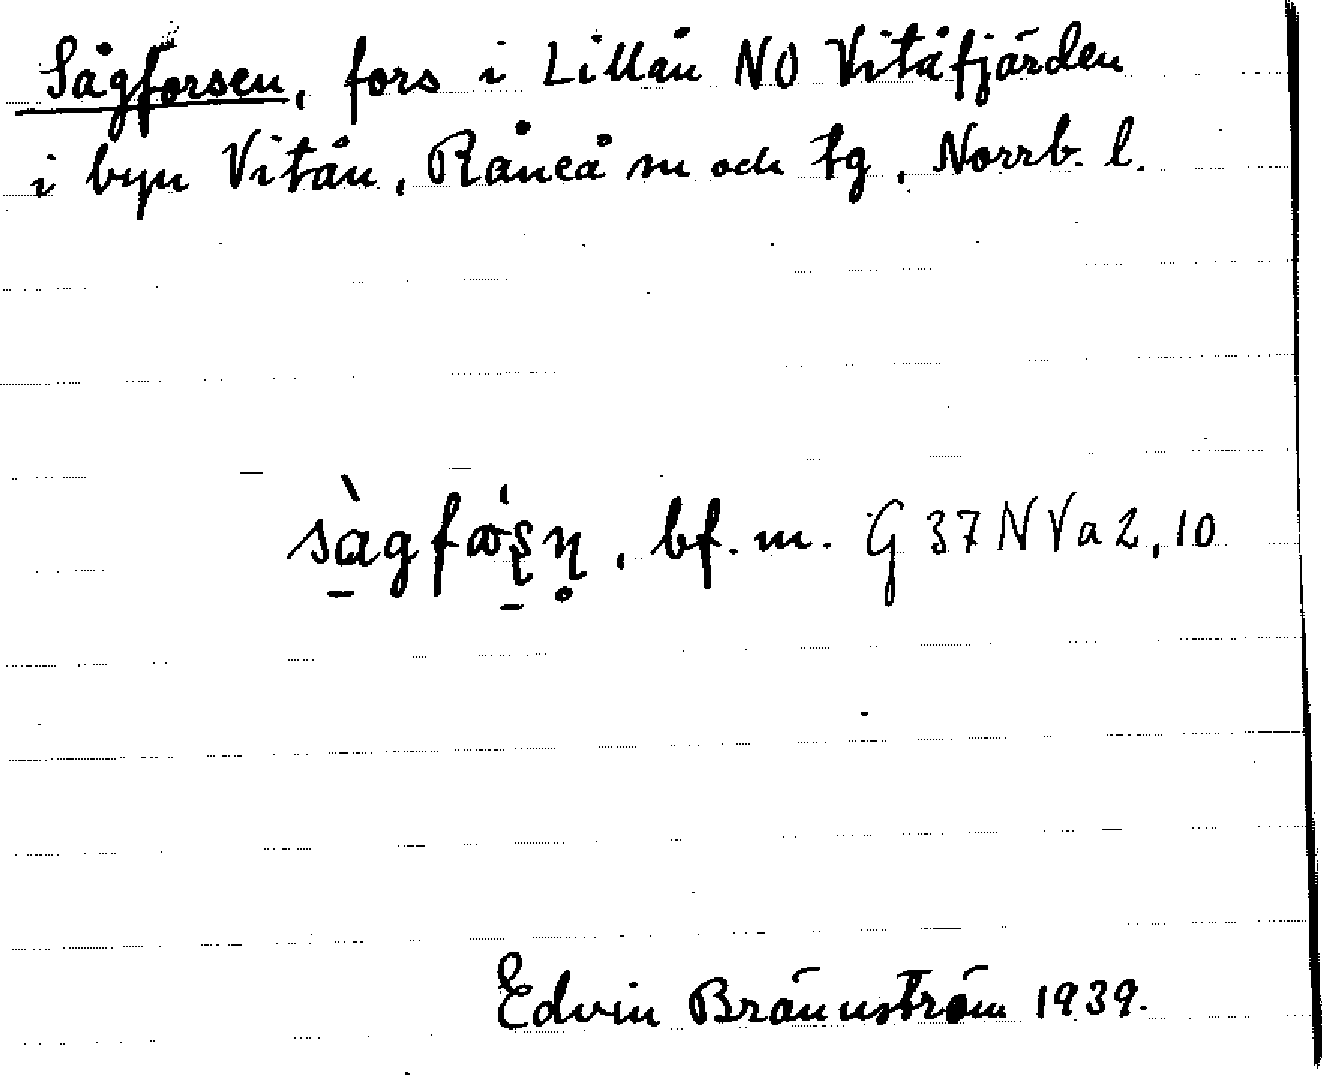 Sågforsen, fors i Lillån NO Vitåfjärden
i byn Vitån, Råneå sn och tg, Norrb. l.
bf. m. G 37 N Va 2, 10
Edvin Brännström 1939.